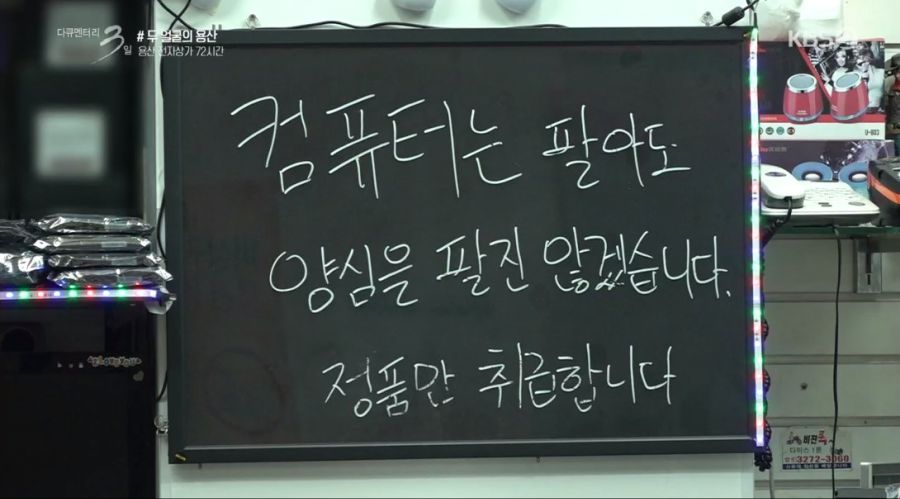 다큐멘터리
3일
# 두 얼굴의 용산
용산 전자상가 72시간
KBS
컴퓨터는 팔아도
양심을 팔진 않겠습니다.
정품만 취급합니다
U-803
비찬콕
다이스 1층
3272-3060